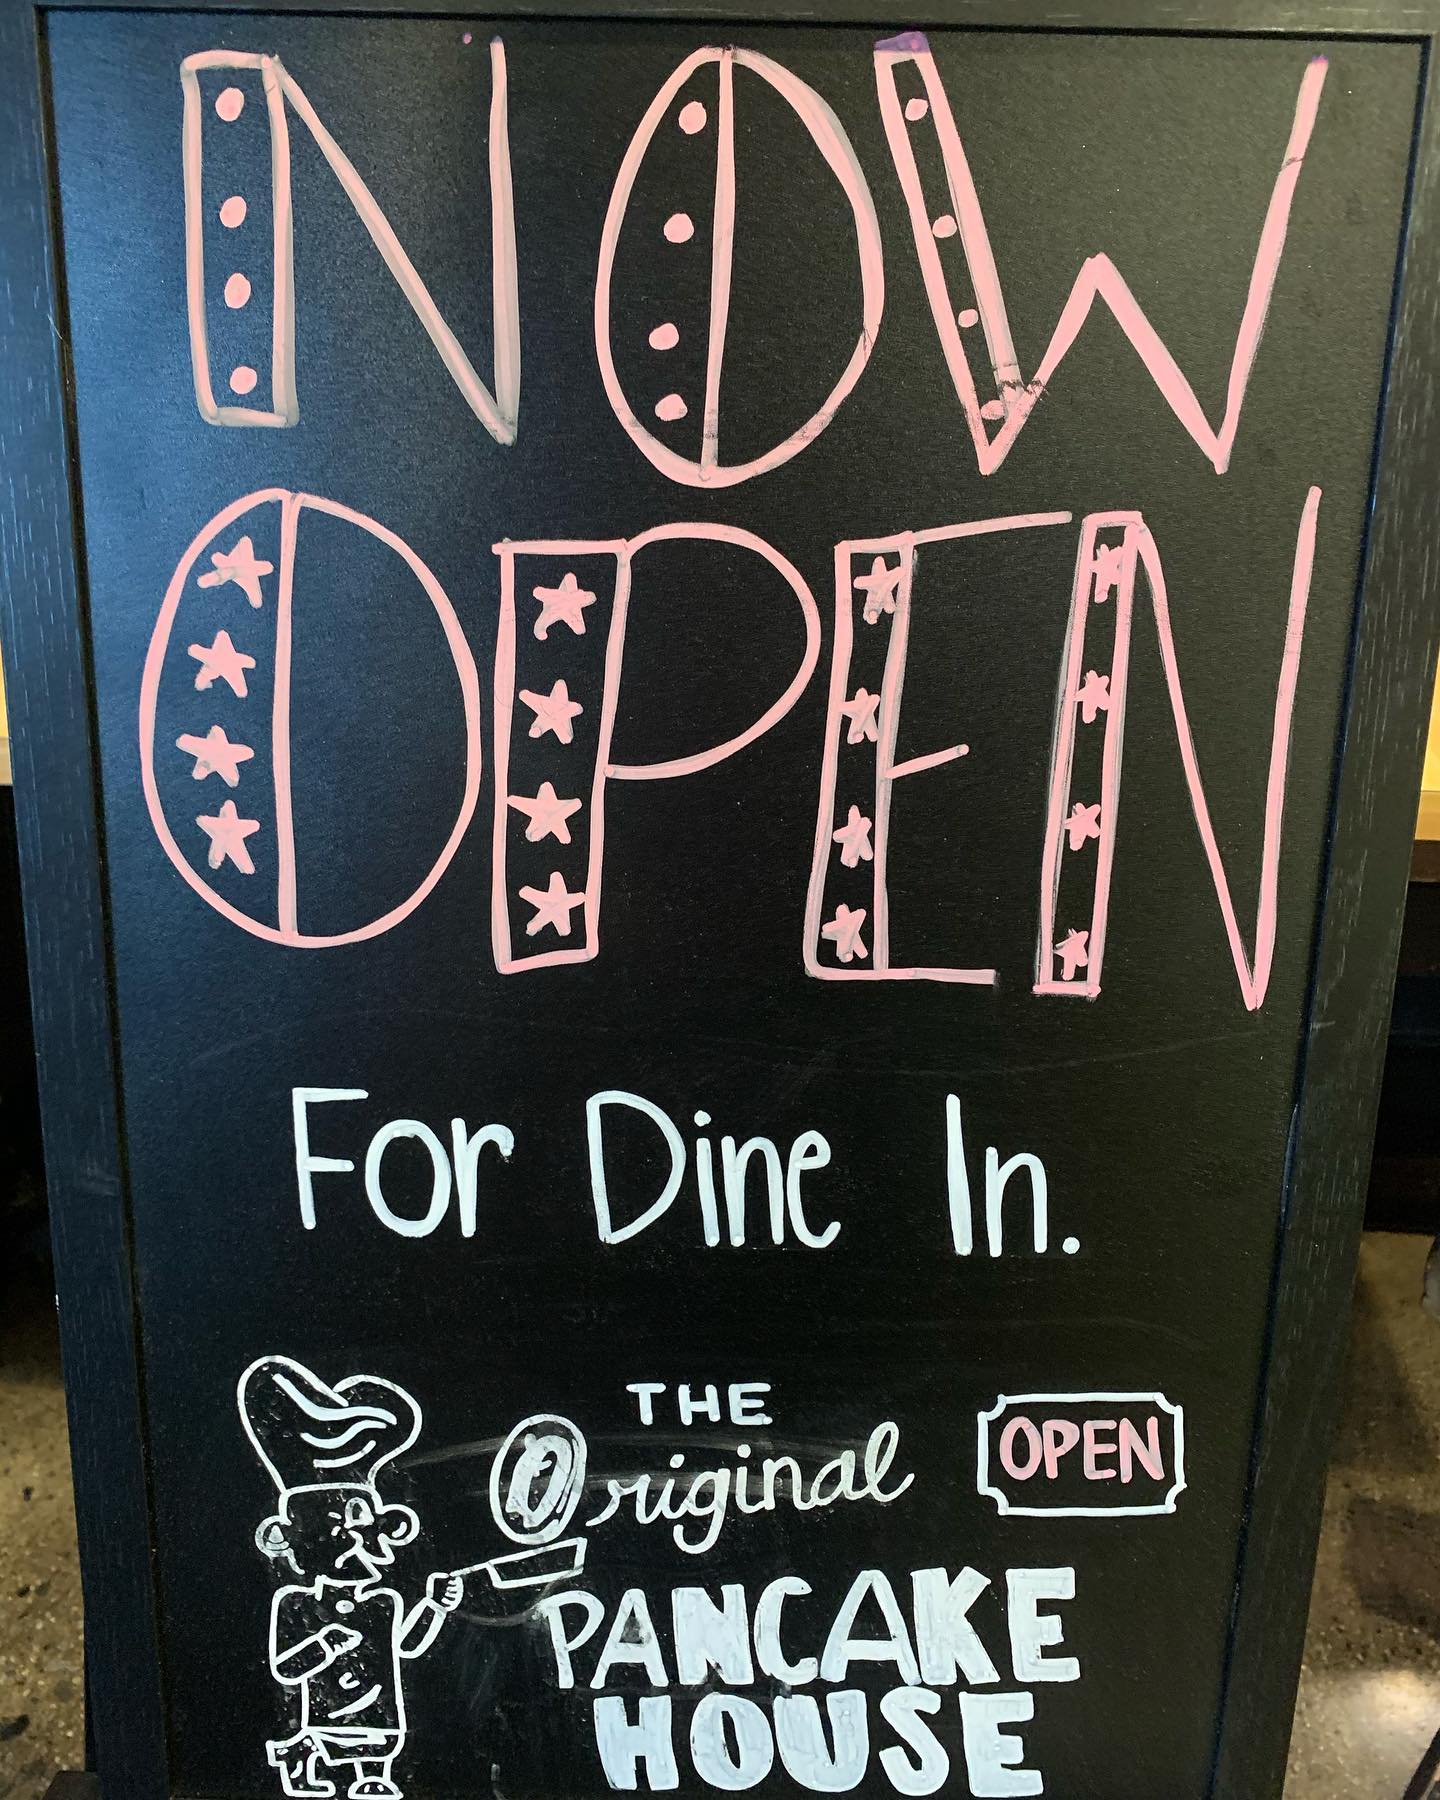 NOW
OPEN
For Dine In.
THE
Original
OPEN
PANCAKE
HOUSE